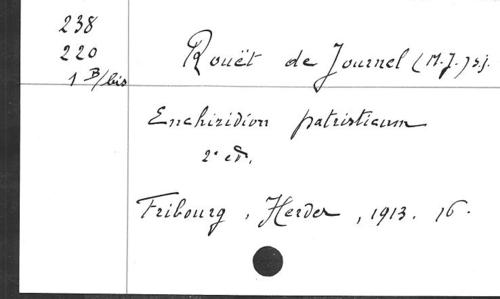 238
220
1 B/bis
Rouët de Journel (M.J.) s.j.
Enchiridion patristicum
2e ed.
Fribourg, Herder, 1913. 16.